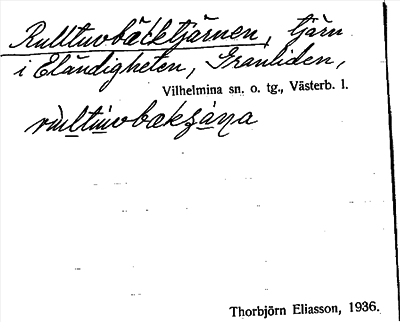 Rulltuvbäcktjärnen, tjärn
i Eländigheten, Granliden,
Vilhelmina sn. o. tg., Västerb. l.
Thorbjörn Eliasson, 1936.